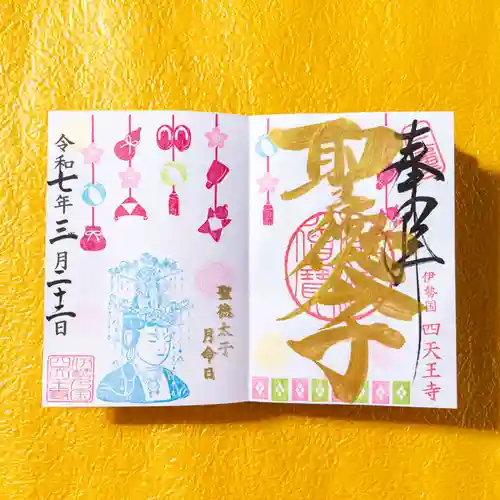 奉拝
聖徳太子
伊勢国 四天王寺
聖徳太子
月命日
令和七年三月二十二日